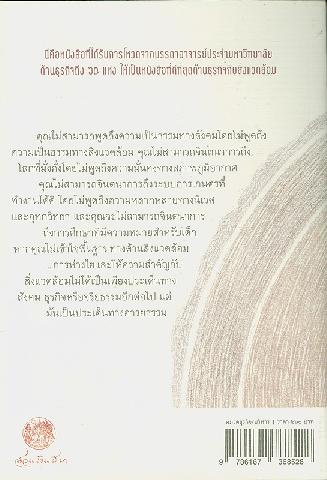 นี่คือหนังสือที่ได้รับการโหวตจากบรรดาอาจารย์ประจำมหาวิทยาลัย
ด้านธุรกิจถึง ๖๐ แห่ง ให้เป็นหนังสือที่ดีที่สุดด้านธุรกิจกับสิ่งแวดล้อม
คุณไม่สามารถพูดถึงความเป็นธรรมทางสังคมโดยไม่พูดถึง
ความเป็นธรรมทางสิ่งแวดล้อม คุณไม่สามารถจินตนาการถึง
โลกที่มั่งคั่งโดยไม่พูดถึงความมั่นคงทางสภาพภูมิอากาศ
คุณไม่สามารถจินตนาการถึงระบบการเกษตรที่
ทำงานได้ดี โดยไม่พูดถึงความหลากหลายทางนิเวศ
และอุทกวิทยา และคุณจะไม่สามารถจินตนาการ
ถึงการศึกษาที่มีความหมายสำหรับเด็ก
หากคุณไม่เข้าใจพื้นฐาน ทางด้านสิ่งแวดล้อม
การห่วงใย และให้ความสำคัญกับ
สิ่งแวดล้อมไม่ได้เป็นเพียงประเด็นทาง
สังคม ธุรกิจหรือจริยธรรมอีกต่อไป แต่
มันเป็นประเด็นทางอารยธรรม
สวนเงินมีมา
9 786167 368528